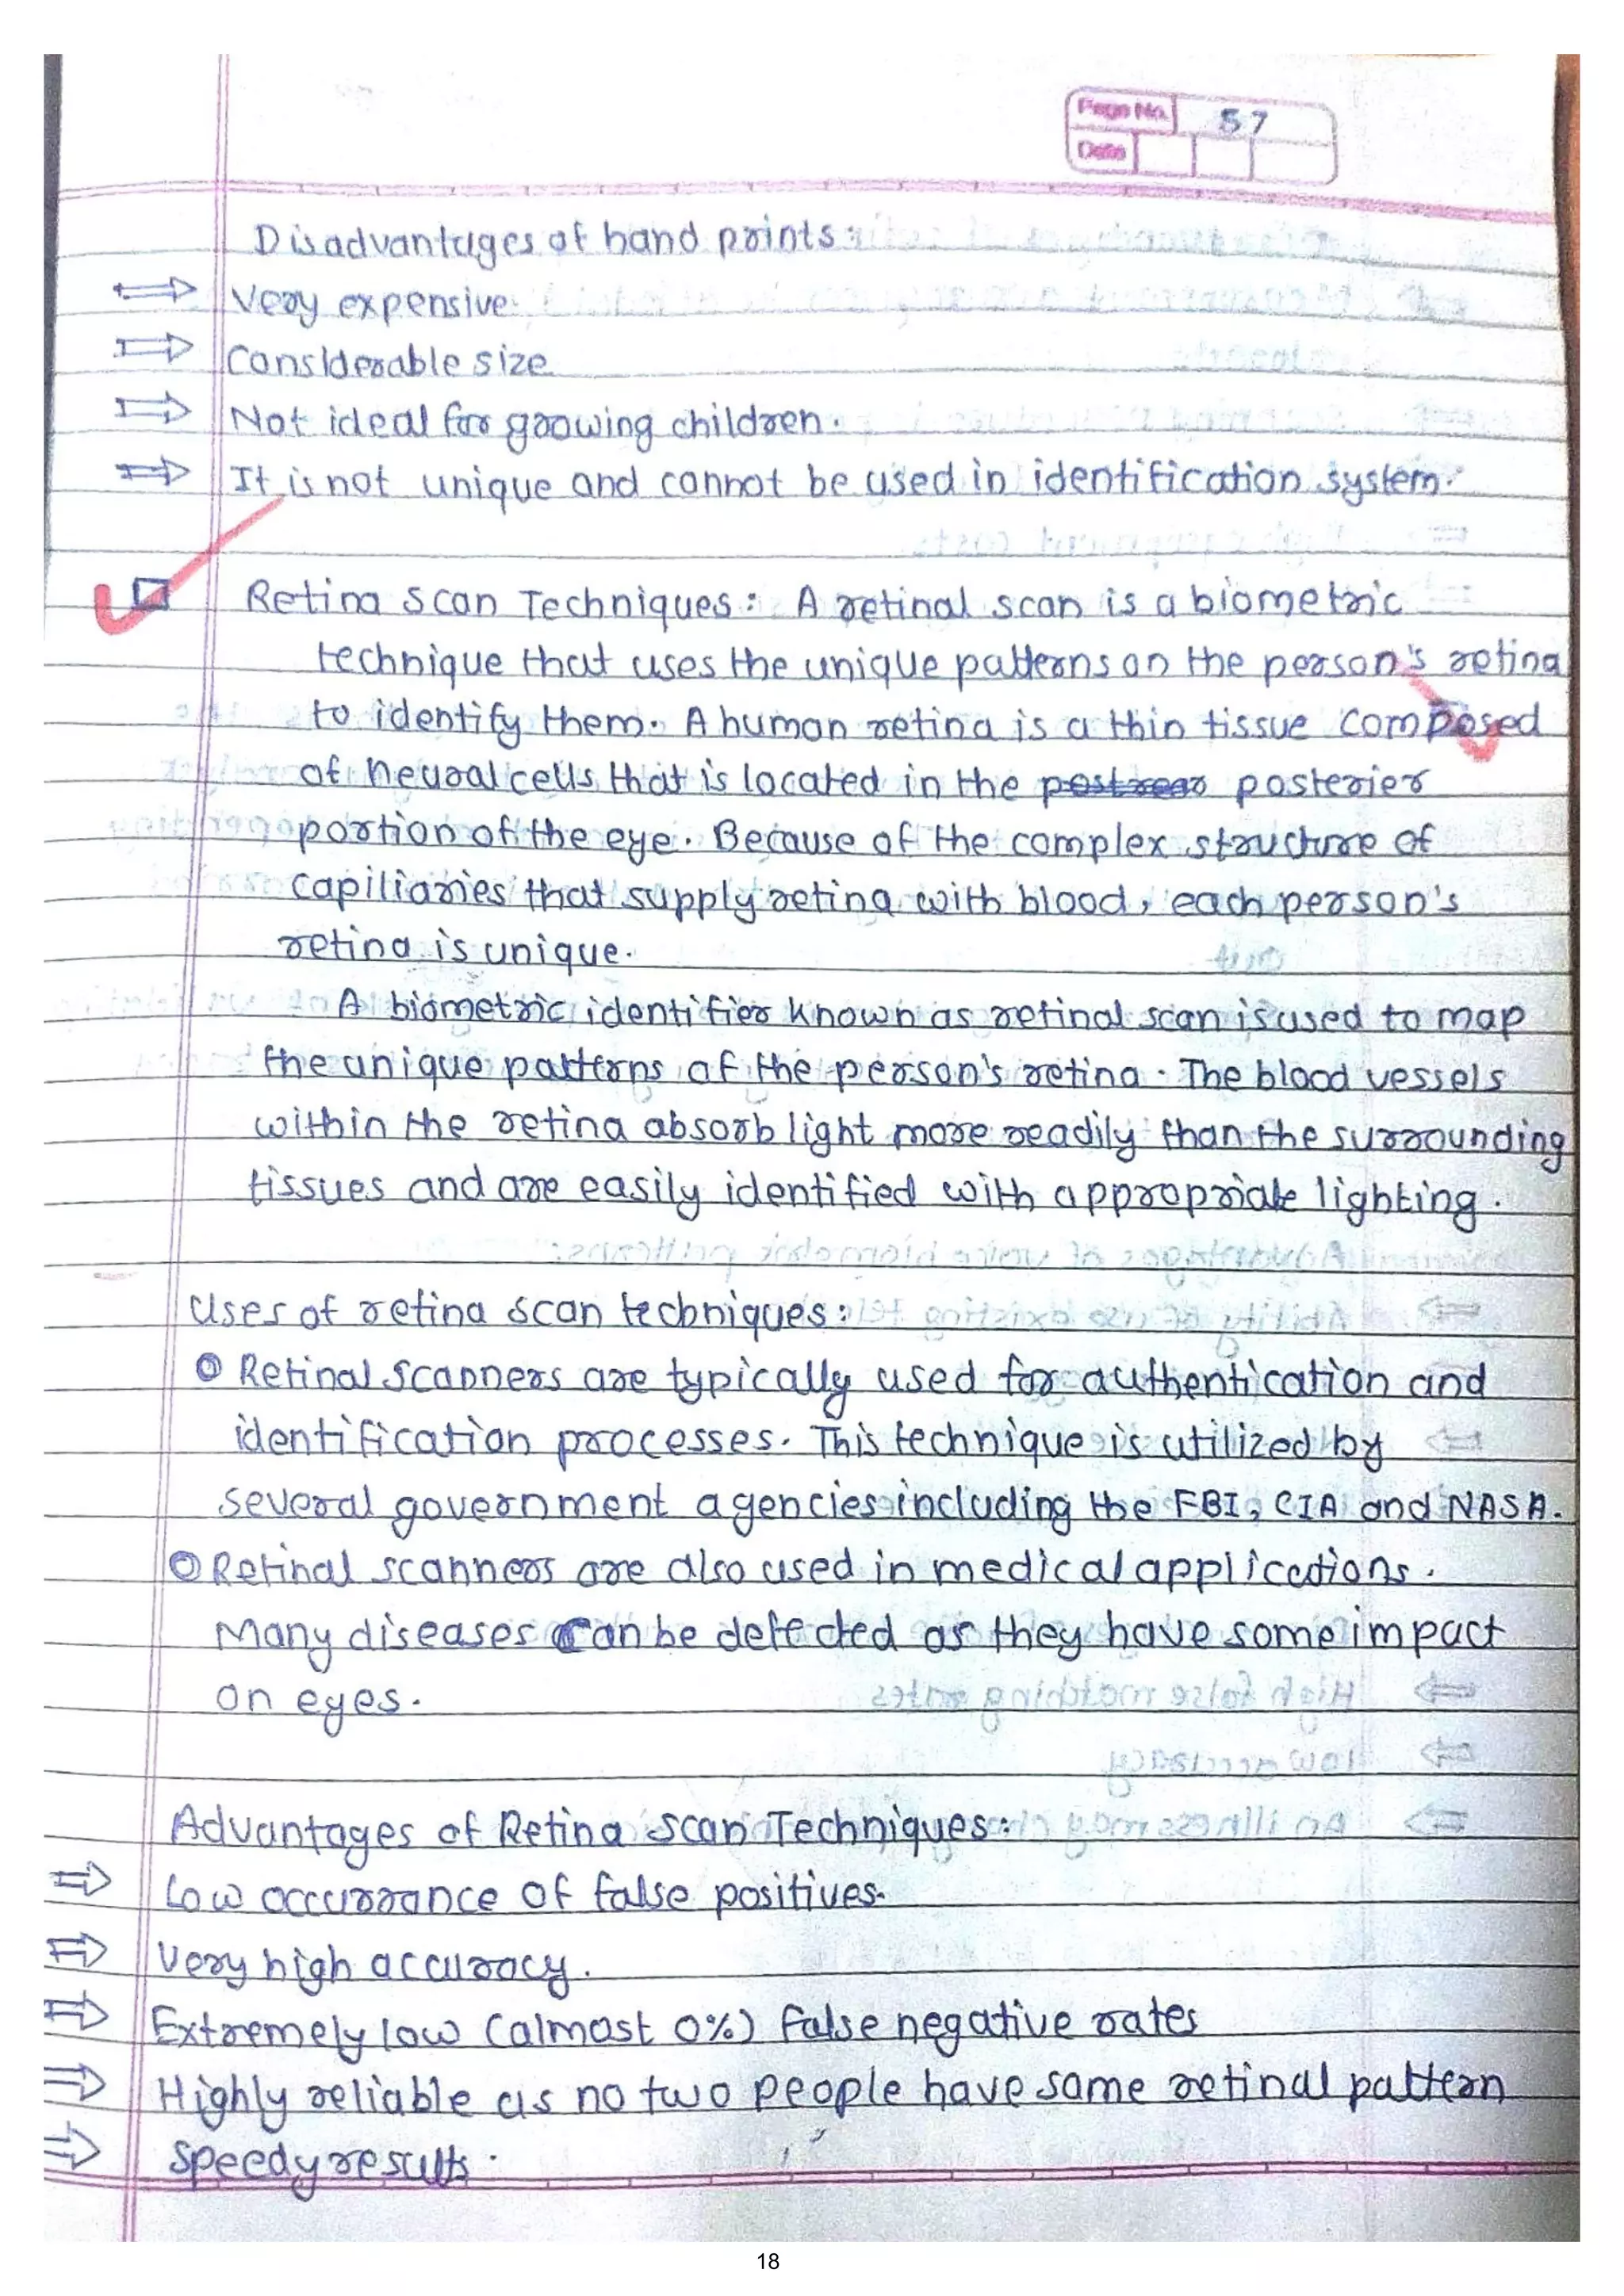 Page No. 57
Date
Disadvantages of hand prints:
⇒ Very expensive
⇒ Considerable size
⇒ Not ideal for growing children.
⇒ It is not unique and cannot be used in identification system.
Retina Scan Techniques: A retinal scan is a biometric
technique that uses the unique patterns on the person's retina
to identify them. A human retina is a thin tissue composed
of neural cells that is located in the posterier
portion of the eye. Because of the complex structure of
capiliaries that supply retina with blood, each person's
retina is unique.
A biometric identifier known as retinal scan is used to map
the unique patterns of the person's retina. The blood vessels
within the retina absorb light more readily than the surrounding
tissues and are easily identified with appropriate lighting.
Uses of retina scan techniques:
Retinal scanners are typically used for authentication and
identification processes. This technique is utilized by
several government agencies including the FBI, CIA and NASA.
Retinal scanners are also used in medical applications.
Many diseases can be detected as they have some impact
on eyes.
Advantages of Retina Scan Techniques:
⇒ Low occurrance of false positives.
⇒ Very high accuracy.
⇒ Extremely low (almost 0%) false negative rates
⇒ Highly reliable as no two people have same retinal pattern
⇒ Speedy results.
18